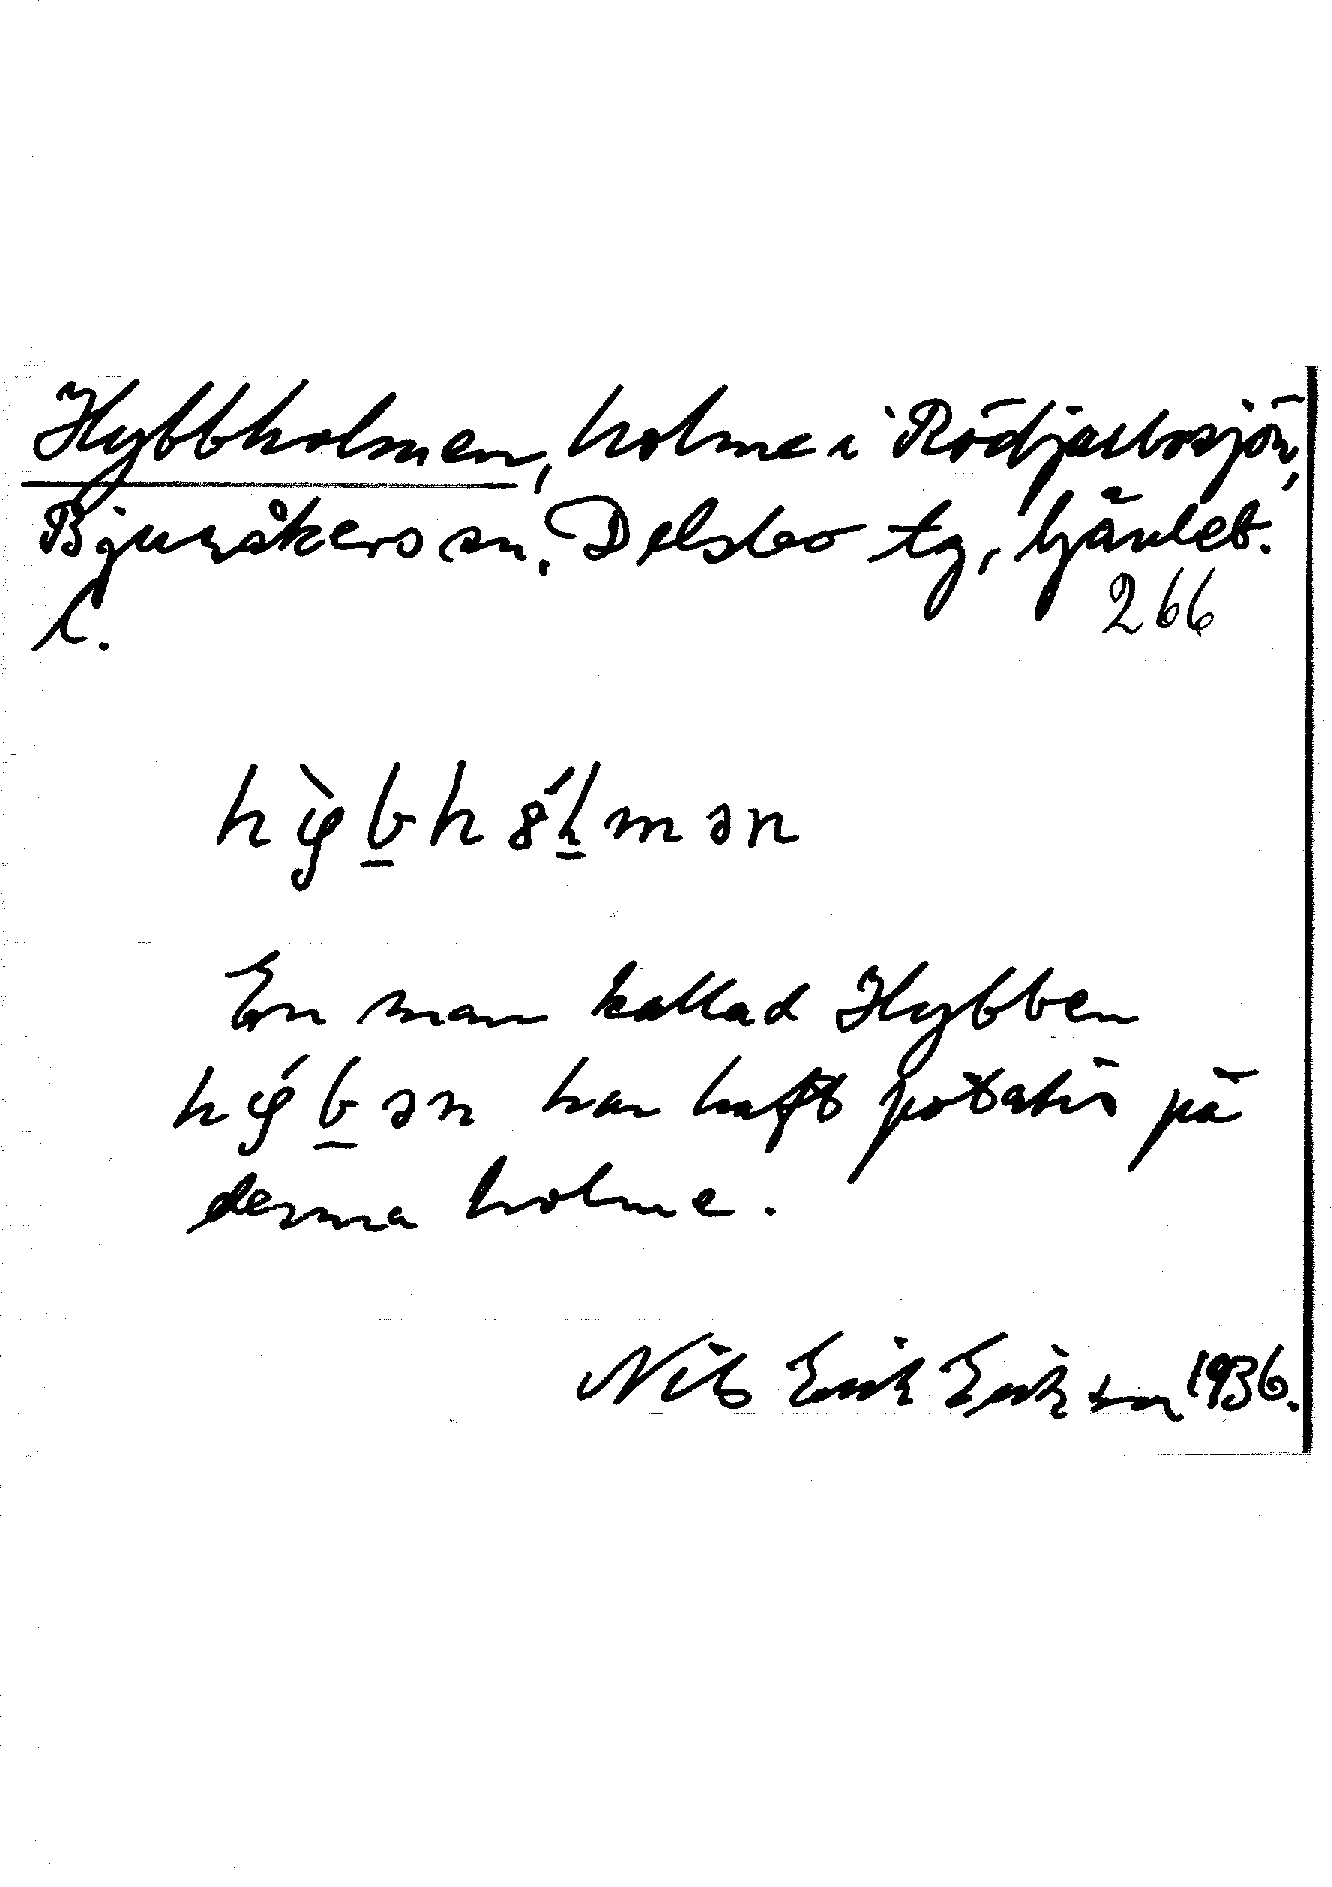 Hybbholmen, holme i Rödjarbosjön,
Bjuråkers sn. Delsbo tg, Gävleb.
l.
266
hỳb̲h8́l̲mən
En man kallad Hybben
hýb̲ən har haft potatis på
denna holme.
Nils Erik Eriksson 1936.